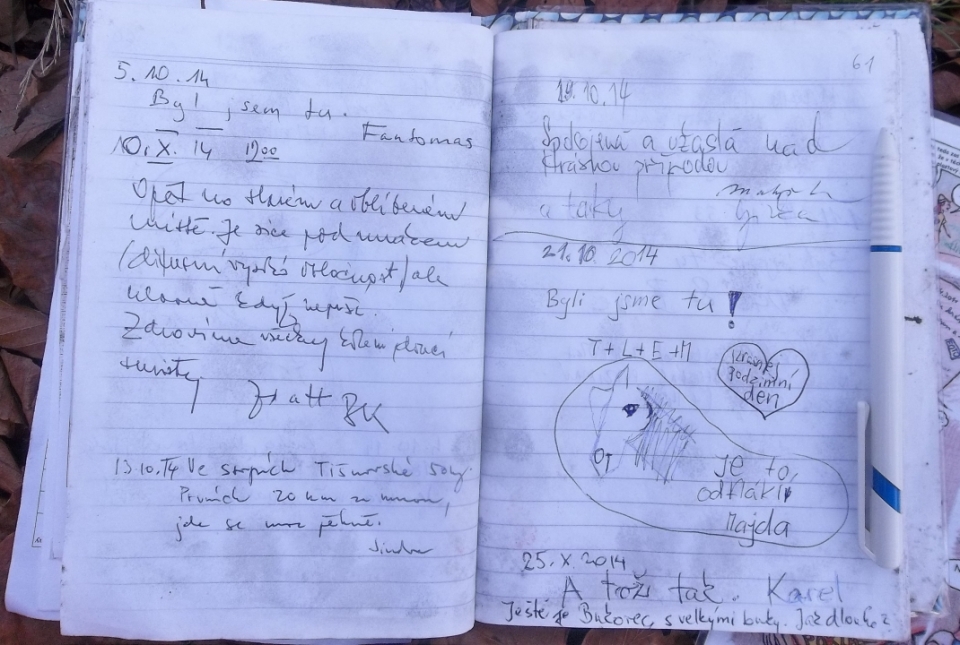 5.10.14
Byl jsem tu.
Fantomas
10.X.14 1900
Opět na tomém a oblíbeném
místě. Je sice pod mrakem
/ ale
hlavně když neprší.
Zdravíme všechny kolem jdoucí
turisty
BK
13.10.14 Ve stopách Tišnovské 50ky.
Prvních 20 km za mnou,
jde se moc pěkně.
61
19.10.14
Spokojená a užaslá nad
krásnou přírodou
a taky
21.10.2014
Byli jsme tu!
T+L+E+M
krásnej
podzimní
den
je to,
odflákl
Majda
25.X.2014
A totiž tak. Karel
Ještě je Bukovec, s velkými buky. Jak dlouho?